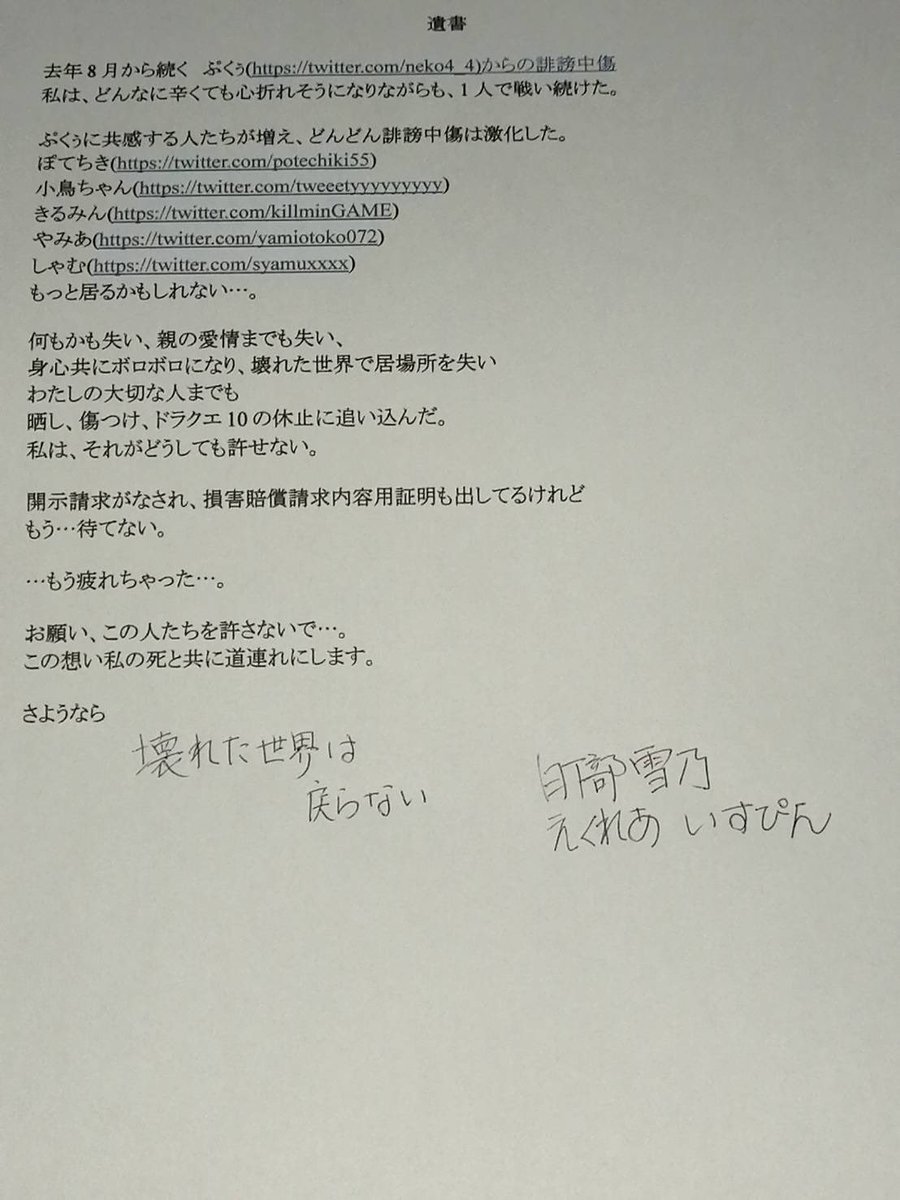 遺書
去年8月から続く　ぷくぅ(https://twitter.com/neko4_4)からの誹謗中傷
私は、どんなに辛くても心折れそうになりながらも、1人で戦い続けた。
ぷくぅに共感する人たちが増え、どんどん誹謗中傷は激化した。
ぽてちき(https://twitter.com/potechiki55)
小鳥ちゃん(https://twitter.com/tweeetyyyyyyyyy)
きるみん(https://twitter.com/killminGAME)
やみあ(https://twitter.com/yamiotoko072)
しゃむ(https://twitter.com/syamuxxxx)
もっと居るかもしれない…。
何もかも失い、親の愛情までも失い、
身心共にボロボロになり、壊れた世界で居場所を失い
わたしの大切な人までも
晒し、傷つけ、ドラクエ10の休止に追い込んだ。
私は、それがどうしても許せない。
開示請求がなされ、損害賠償請求内容用証明も出してるけれど
もう…待てない。
…もう疲れちゃった…。
お願い、この人たちを許さないで…。
この想い私の死と共に道連れにします。
さようなら
壊れた世界は
戻らない
部雪乃
えくれあ いすぴん